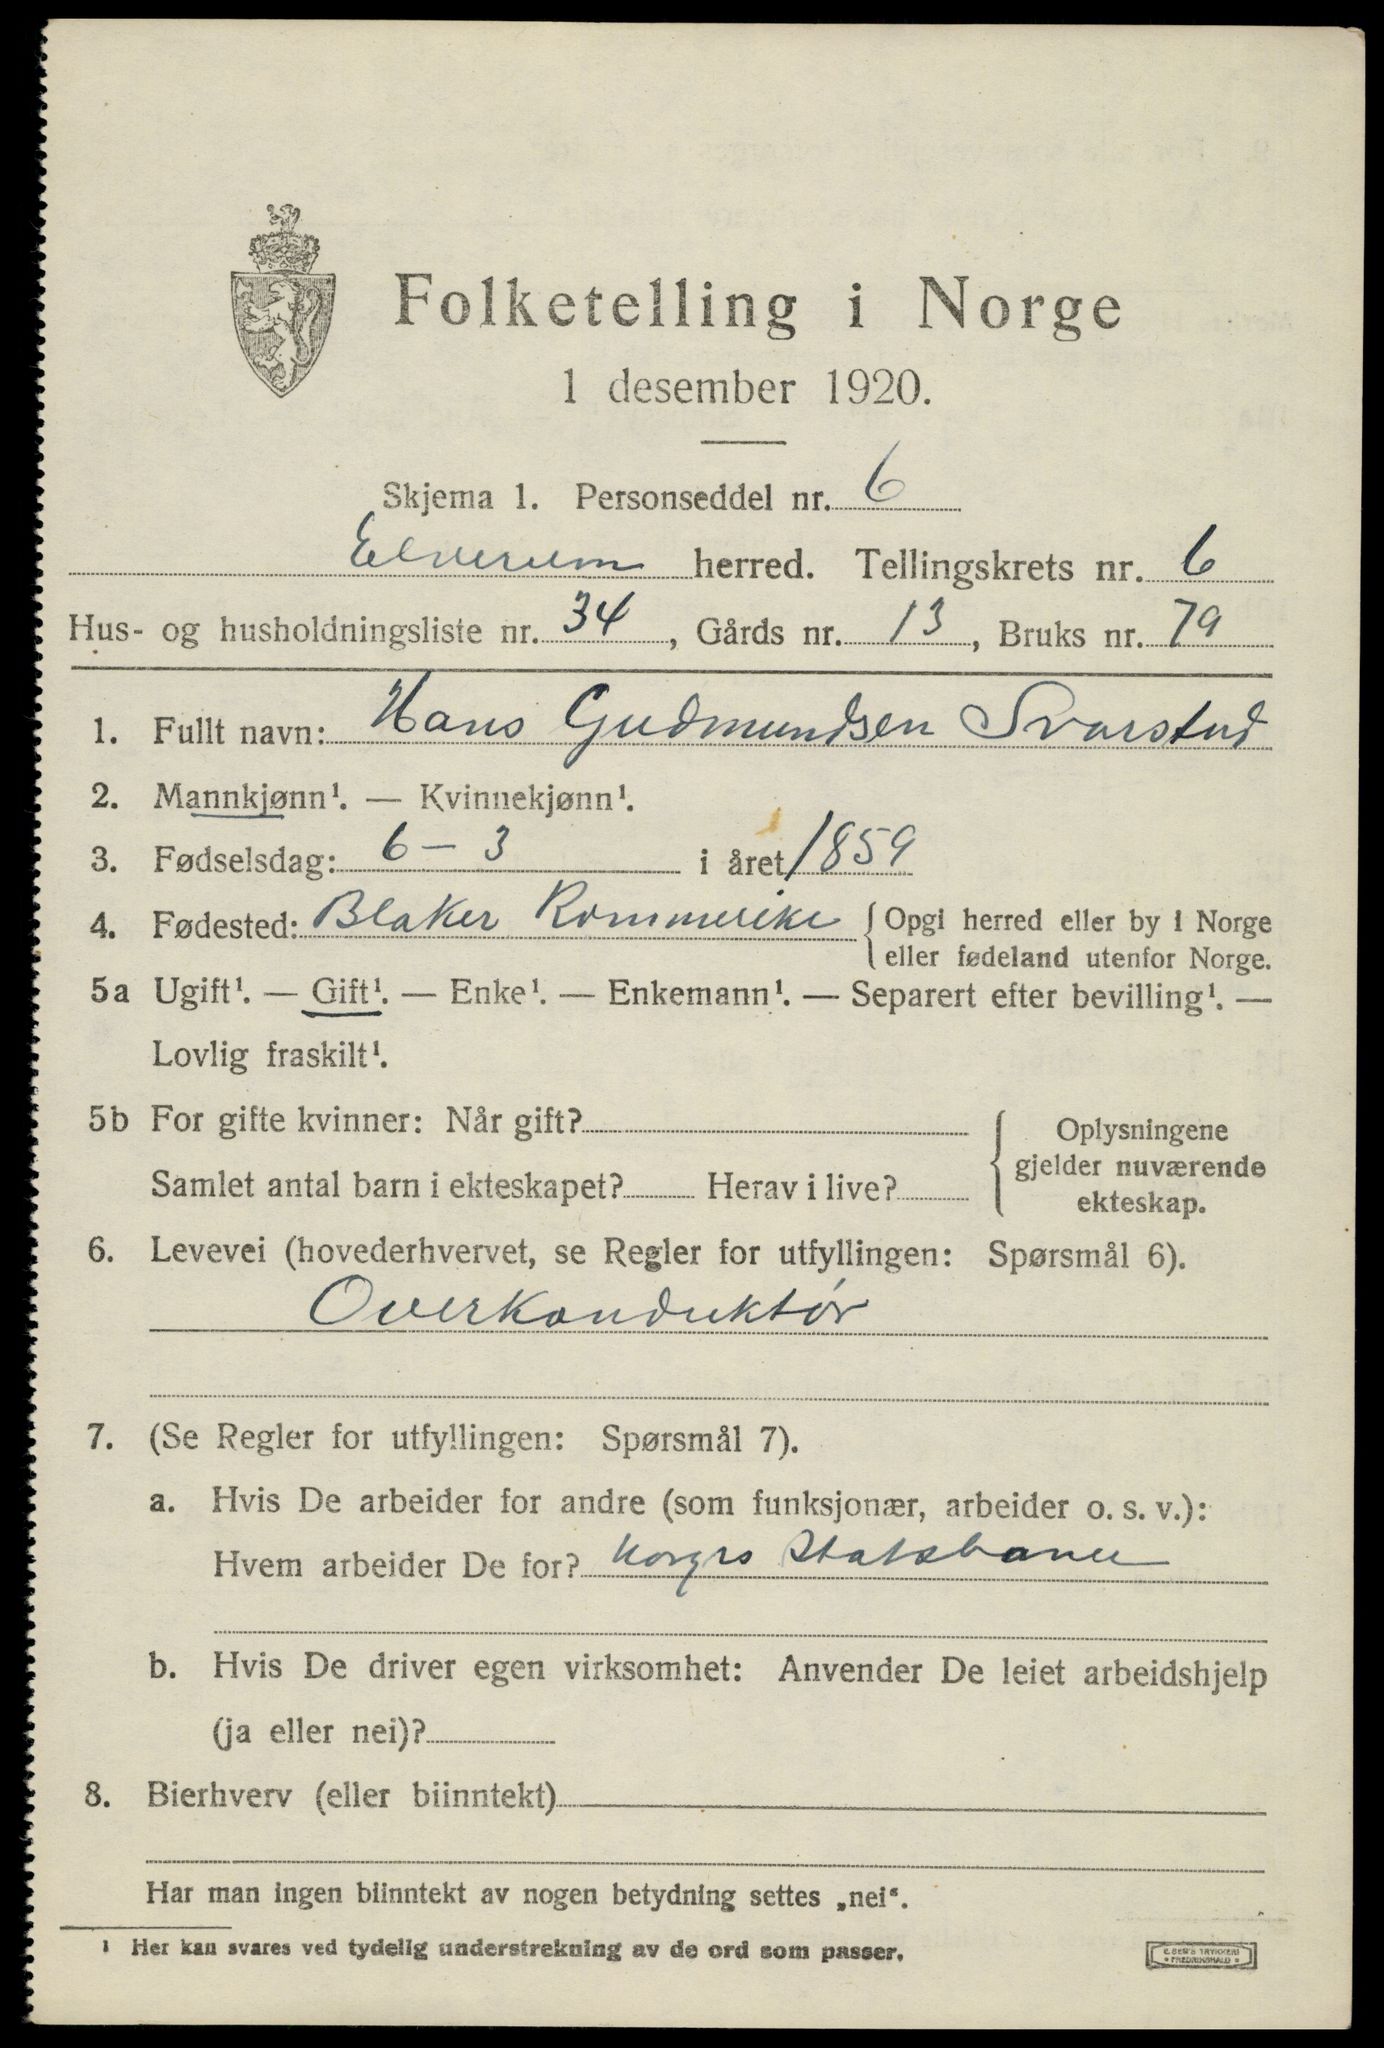 Folketelling i Norge
1 desember 1920.
Skjema 1. Personseddel nr. 6
Elverum herred. Tellingskrets nr. 6
Hus- og husholdningsliste nr. 34, Gårds nr. 13, Bruks nr. 79
1. Fullt navn: Hans Gudmundsen Svarstad
2. Mannkjønn¹. — Kvinnekjønn¹.
3. Fødselsdag: 6 – 3 i året 1859
4. Fødested: Blaker Rommerike { Opgi herred eller by i Norge
eller fødeland utenfor Norge.
5a Ugift¹. — Gift¹. — Enke¹. — Enkemann¹. — Separert efter bevilling¹. —
Lovlig fraskilt¹.
5b For gifte kvinner: Når gift?
Samlet antal barn i ekteskapet? Herav i live?
{ Oplysningene
gjelder nuværende
ekteskap.
6. Levevei (hovederhvervet, se Regler for utfyllingen: Spørsmål 6).
Overkonduktør
7. (Se Regler for utfyllingen: Spørsmål 7).
a. Hvis De arbeider for andre (som funksjonær, arbeider o. s. v.):
Hvem arbeider De for? Norges Statsbaner
b. Hvis De driver egen virksomhet: Anvender De leiet arbeidshjelp
(ja eller nei)?
8. Bierhverv (eller biinntekt)
Har man ingen biinntekt av nogen betydning settes „nei“.
¹ Her kan svares ved tydelig understrekning av de ord som passer.
E. SEM'S TRYKKERI
• FREDRIKSHALD •